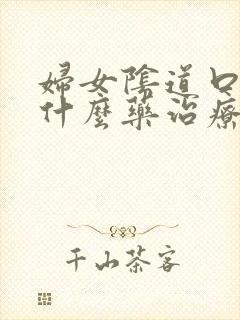 婦女陰道口
什麼藥治療
千山茶客